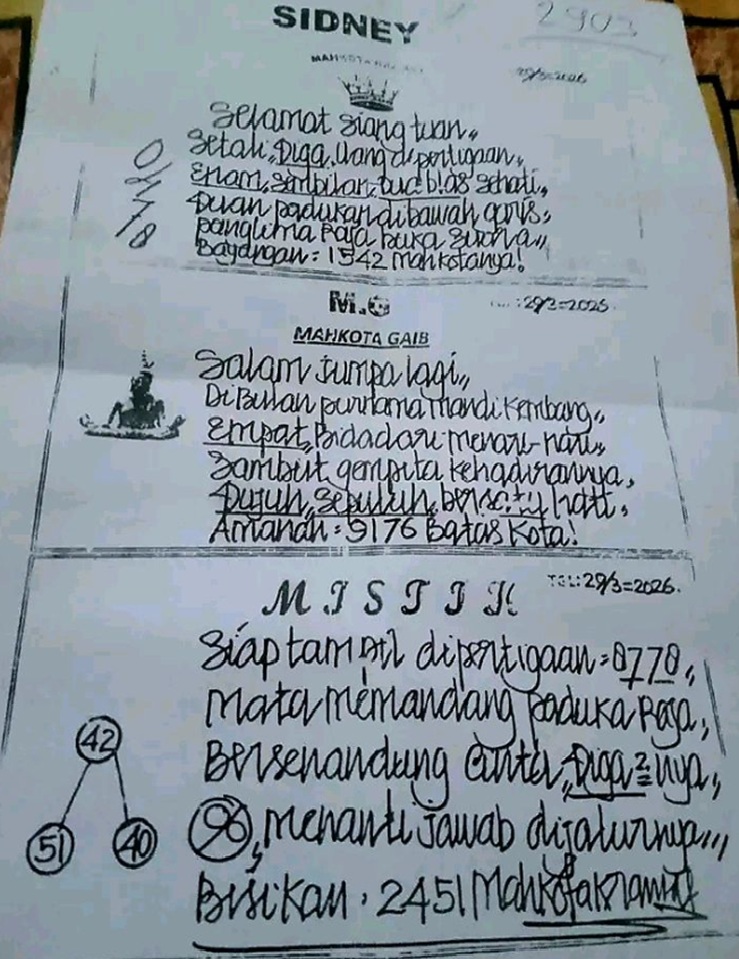 SIDNEY
2903
29/3=2026
Selamat siang tuan,,
Setali, Diga, Uang dipertigaan,,
Enam, sembilan, Dua blas sehati,,
0/
1/
7/
8
Duan padukan dibawah garis,
panglima Raja buka suara,,
Bayangan = 1542 mahkotanya!
M.G
29/3=2026
MAHKOTA GAIB
Salam jumpa lagi,,
Di Bulan purnama mandi kembang,,
Empat, Bidadari menari-nari,,
Sambut gempita kehadirannya,
Dujuh, Sepuluh, bersatu hati,
Amanah = 9176 Batas Kota!
TGL: 29/3=2026.
MISTIK
Siap tampil dipertigaan = 0770,,
Mata memandang paduka Raja,
Bersenandung cinta, Diga 2=nya,
42
51
40
96, menanti jawab dijalurnya,,,
Bisikan : 2451 Mahkota